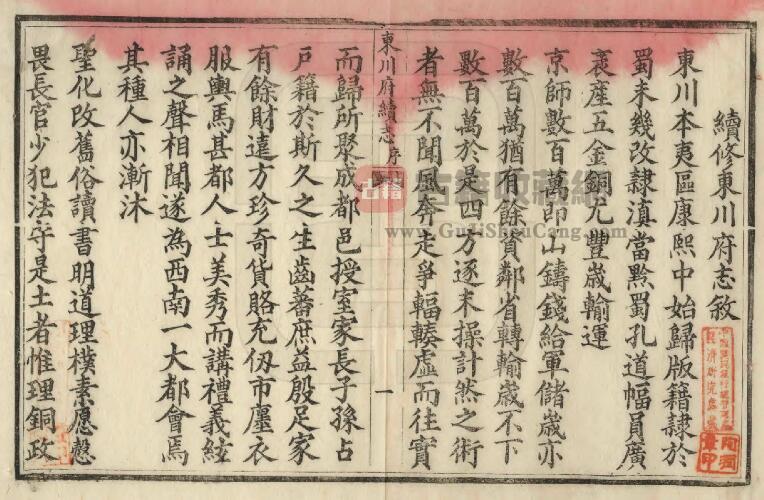 續修東川府志敘
東川本夷區康熙中始歸版籍隸於
蜀未幾改隸滇當黔蜀孔道幅員廣
袤産五金銅尤豐歲輸運
京師數百萬即山鑄錢給軍儲歲亦
數百萬猶有餘資鄰省轉輸歲不下
數百萬於是四方逐末操計然之術
者無不聞風奔走爭輻輳虛而往實
東川府續志 序
一
而歸所聚成都邑授室家長子孫占
戶籍於斯久之生齒蕃庶益殷足家
有餘財遠方珍奇貨賂充仞市廛衣
服輿馬甚都人士美秀而講禮義絃
誦之聲相聞遂為西南一大都會焉
其種人亦漸沐
聖化改舊俗讀書明道理樸素愿慤
畏長官少犯法守是土者惟理銅政
古籍
古籍收藏網
www.GuJiShouCang.com